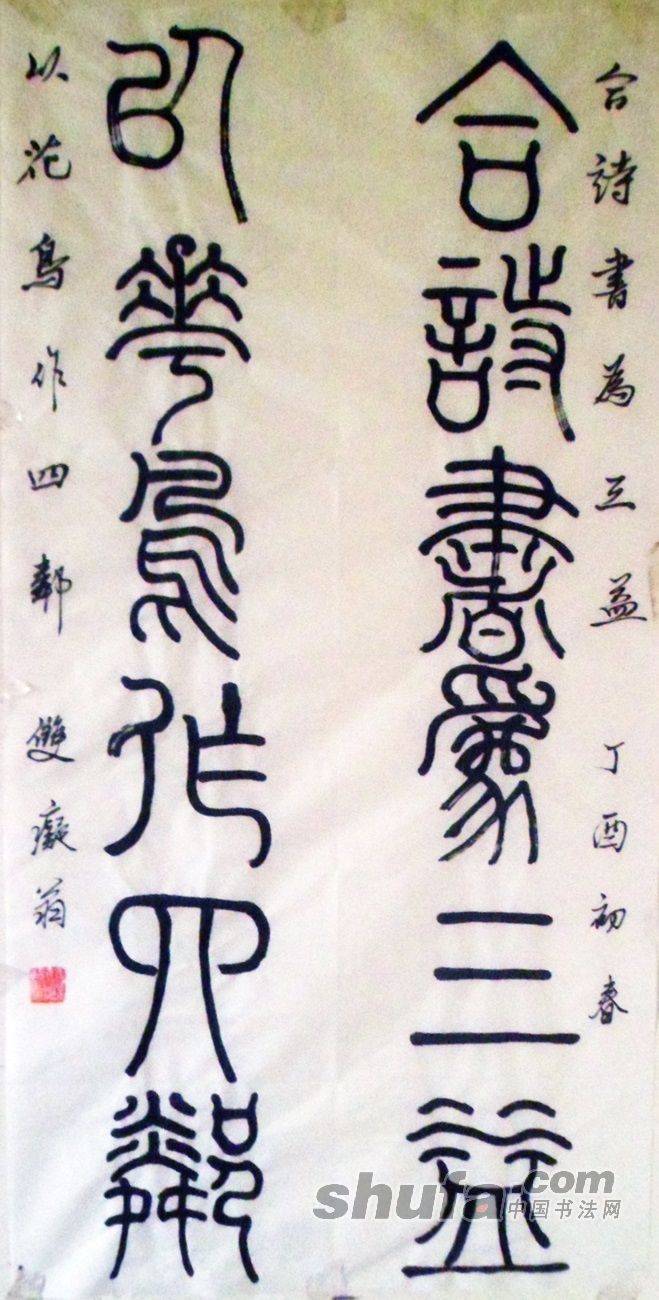 合詩書為三益 丁酉初春
合詩書為三益
以華鳥作四鄰
以花鳥作四鄰 雙癡翁
shufa.com
中国书法网